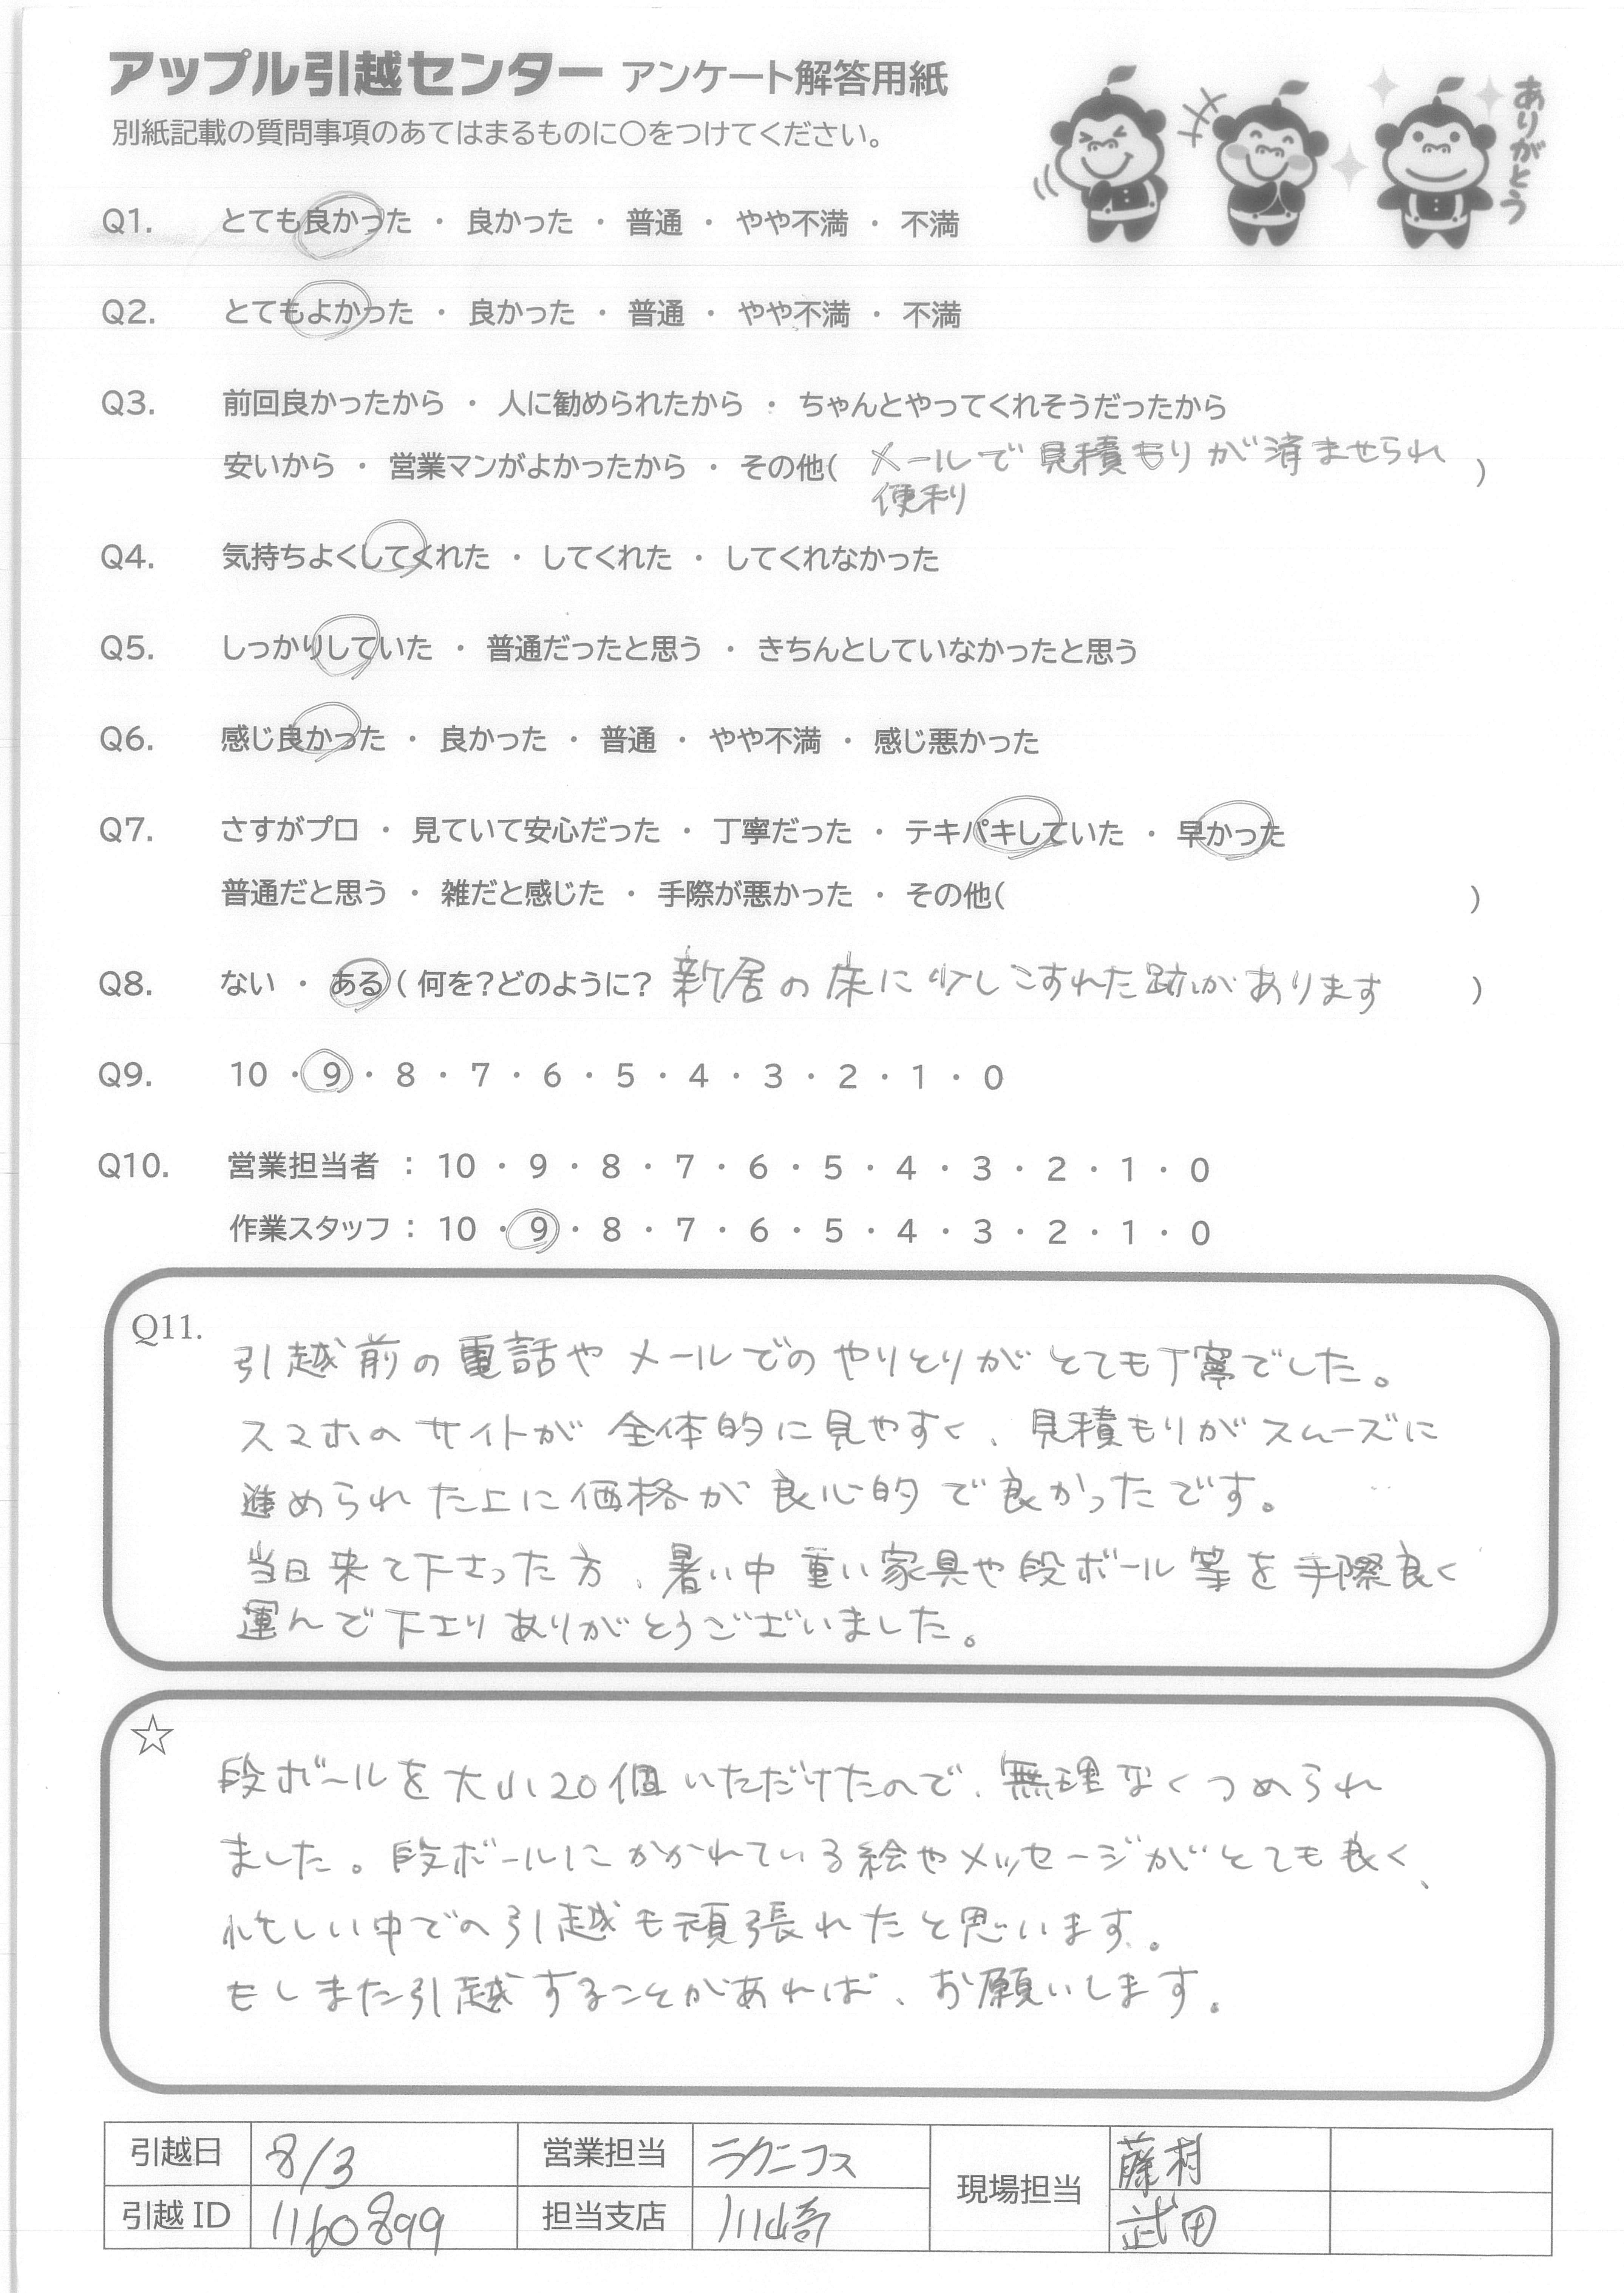 アップル引越センター アンケート解答用紙
別紙記載の質問事項のあてはまるものに〇をつけてください。
ありがとう
Q1. とても良かった ・ 良かった ・ 普通 ・ やや不満 ・ 不満
Q2. とてもよかった ・ 良かった ・ 普通 ・ やや不満 ・ 不満
Q3. 前回良かったから ・ 人に勧められたから ・ ちゃんとやってくれそうだったから
安いから ・ 営業マンがよかったから ・ その他( メールで見積もりが済ませられ )
便利
Q4. 気持ちよくしてくれた ・ してくれた ・ してくれなかった
Q5. しっかりしていた ・ 普通だったと思う ・ きちんとしていなかったと思う
Q6. 感じ良かった ・ 良かった ・ 普通 ・ やや不満 ・ 感じ悪かった
Q7. さすがプロ ・ 見ていて安心だった ・ 丁寧だった ・ テキパキしていた ・ 早かった
普通だと思う ・ 雑だと感じた ・ 手際が悪かった ・ その他( )
Q8. ない ・ ある ( 何を?どのように? 新居の床に少しこすれた跡があります )
Q9. 10 ・ 9 ・ 8 ・ 7 ・ 6 ・ 5 ・ 4 ・ 3 ・ 2 ・ 1 ・ 0
Q10. 営業担当者 : 10 ・ 9 ・ 8 ・ 7 ・ 6 ・ 5 ・ 4 ・ 3 ・ 2 ・ 1 ・ 0
作業スタッフ : 10 ・ 9 ・ 8 ・ 7 ・ 6 ・ 5 ・ 4 ・ 3 ・ 2 ・ 1 ・ 0
Q11.
引越前の電話やメールでのやりとりがとても丁寧でした。
スマホのサイトが全体的に見やすく、見積もりがスムーズに
進められた上に価格が良心的で良かったです。
当日来て下さった方、暑い中重い家具や段ボール等を手際良く
運んで下さりありがとうございました。
☆
段ボールを大小20個いただけたので、無理なくつめられ
ました。段ボールにかかれている絵やメッセージがとても良く、
忙しい中での引越も頑張れたと思います。
もしまた引越することがあれば、お願いします。
引越日 8/3 営業担当 ラクニコス 現場担当 藤村
引越 ID 1160899 担当支店 川崎 武田